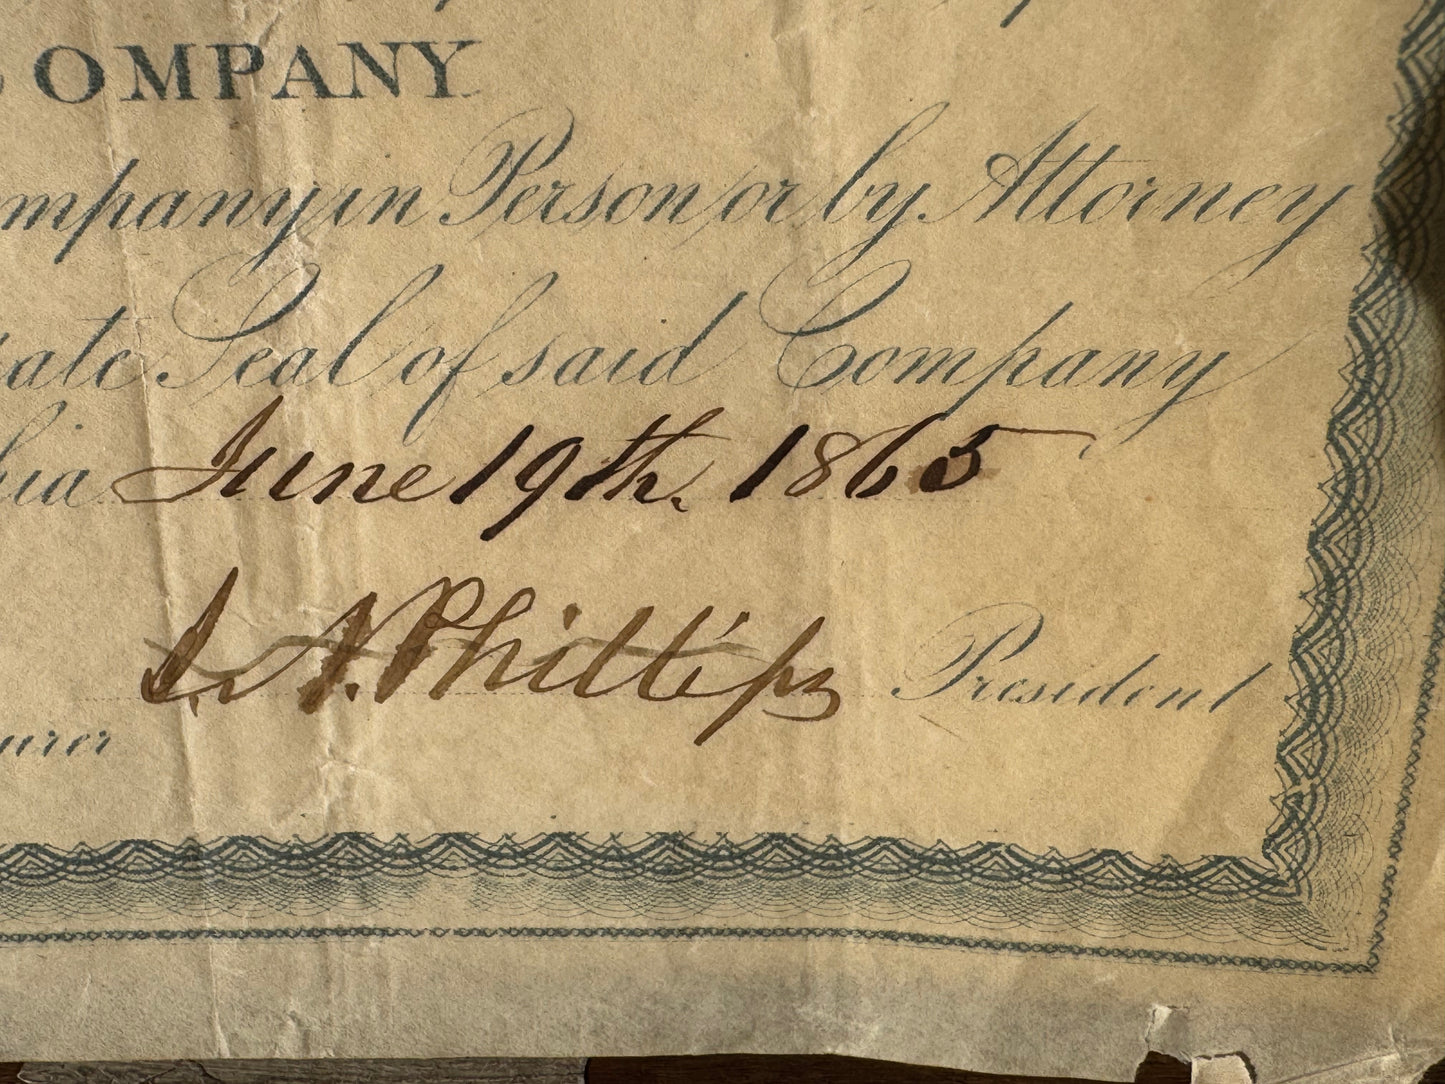 OMPANY
ompany in Person or by Attorney
rate Seal of said Company
hia June 19th. 1865
Phillips President
urer